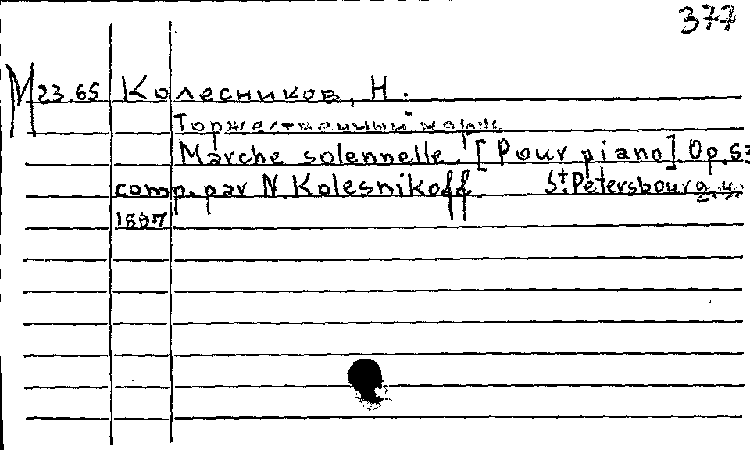 377
М 23.65 Колесников, Н.
Торжественный марш
Marche solennelle. [Pour piano]. Op. 53
comp. par N. Kolesnikoff. St. Petersbourg
1897